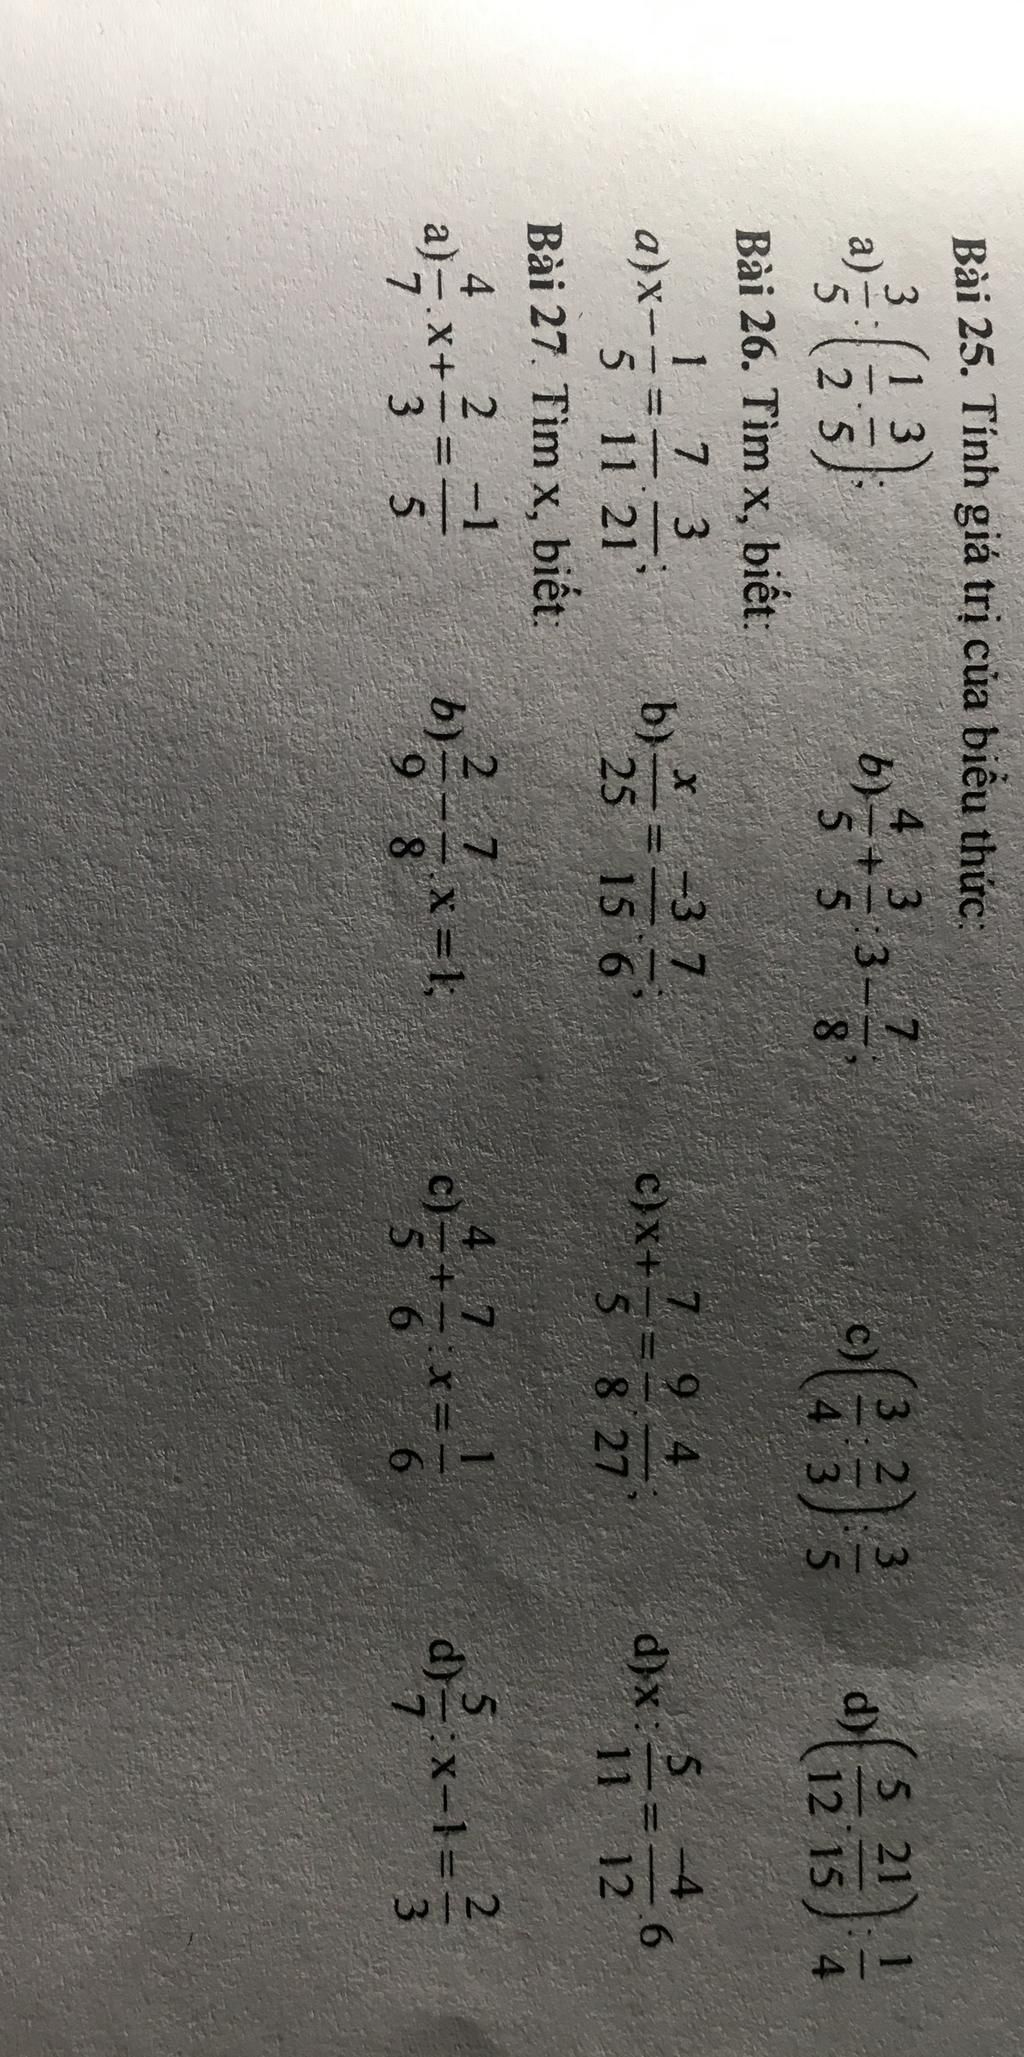 Bài 25. Tính giá trị của biểu thức:
a) 3/5 : (1/2 . 3/5); b) 4/5 + 3/5 : 3 − 7/8; c) (3/4 : 2/3) : 3/5 d) (5/12 . 21/15) : 1/4
Bài 26. Tìm x, biết:
a) x − 1/5 = 7/11 . 3/21; b) x/25 = −3/15 . 7/6; c) x + 7/5 = 9/8 . 4/27; d) x : 5/11 = −4/12 . 6
Bài 27. Tìm x, biết:
a) 4/7 . x + 2/3 = −1/5 b) 2/9 − 7/8 . x = 1; c) 4/5 + 7/6 : x = 1/6 d) 5/7 : x − 1 = 2/3